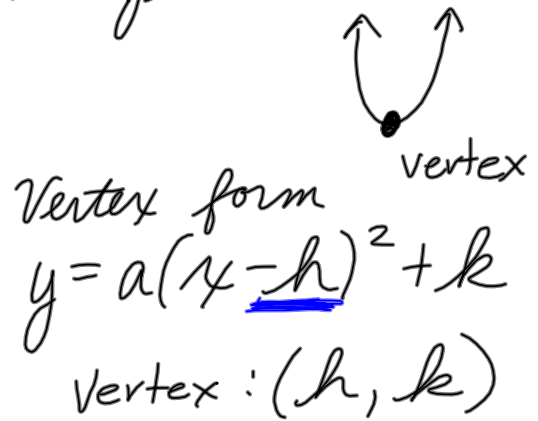 vertex
Vertex form
y = a(x - h)² + k
vertex : (h, k)